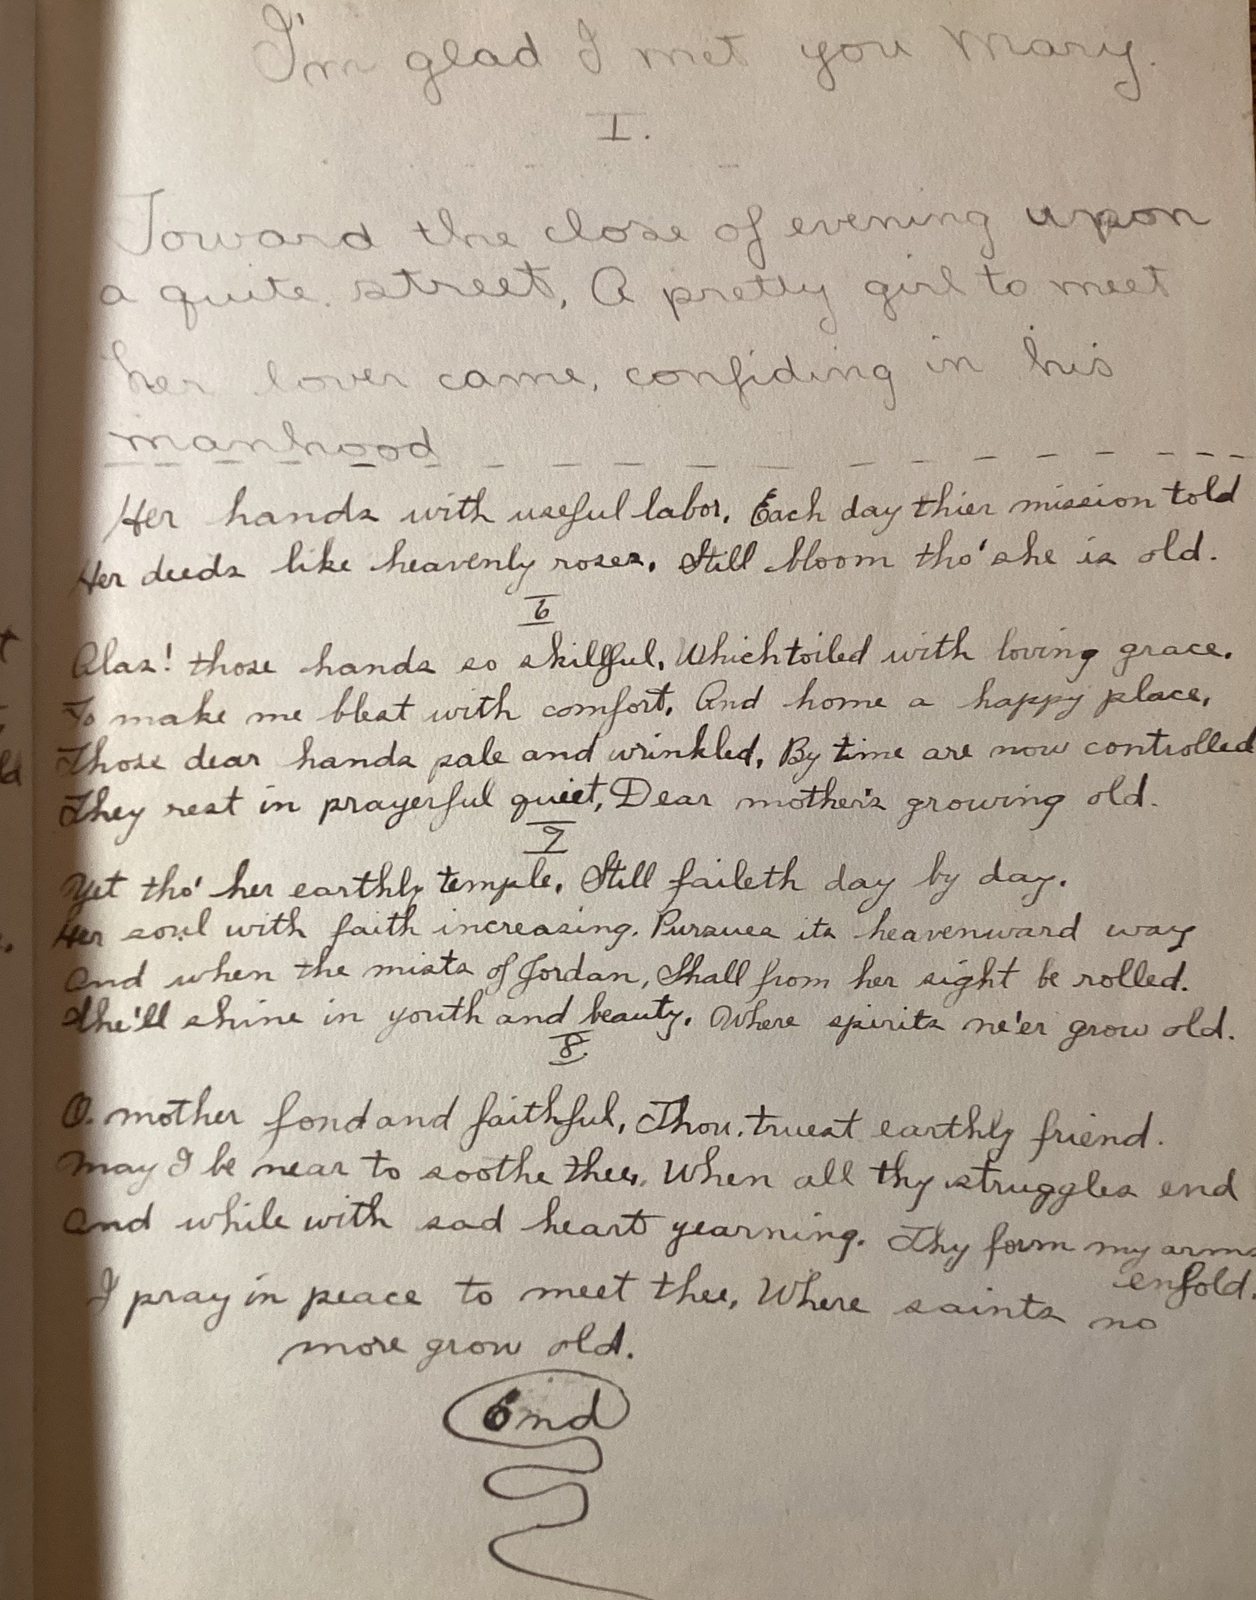 I'm glad I met you Mary.
I.
Toward the close of evening upon
a quite street, A pretty girl to meet
her lover came, confiding in his
manhood
Her hands with useful labor, Each day thier mission told
Her deeds like heavenly roses, Still bloom tho' she is old.
6
Alas! those hands so skillful, Which toiled with loving grace,
To make me blest with comfort, And home a happy place,
Those dear hands pale and wrinkled, By time are now controlled
They rest in prayerful quiet, Dear mother's growing old.
7
Yet tho' her earthly temple, Still faileth day by day.
Her soul with faith increasing, Pursues its heavenward way
And when the mists of Jordan, Shall from her sight be rolled.
She'll shine in youth and beauty, Where spirits ne'er grow old.
8
O. mother fond and faithful, Thou, truest earthly friend.
May I be near to soothe thee, When all thy struggles end
And while with sad heart yearning. Thy form my arms
enfold.
I pray in peace to meet thee, Where saints no
more grow old.
End